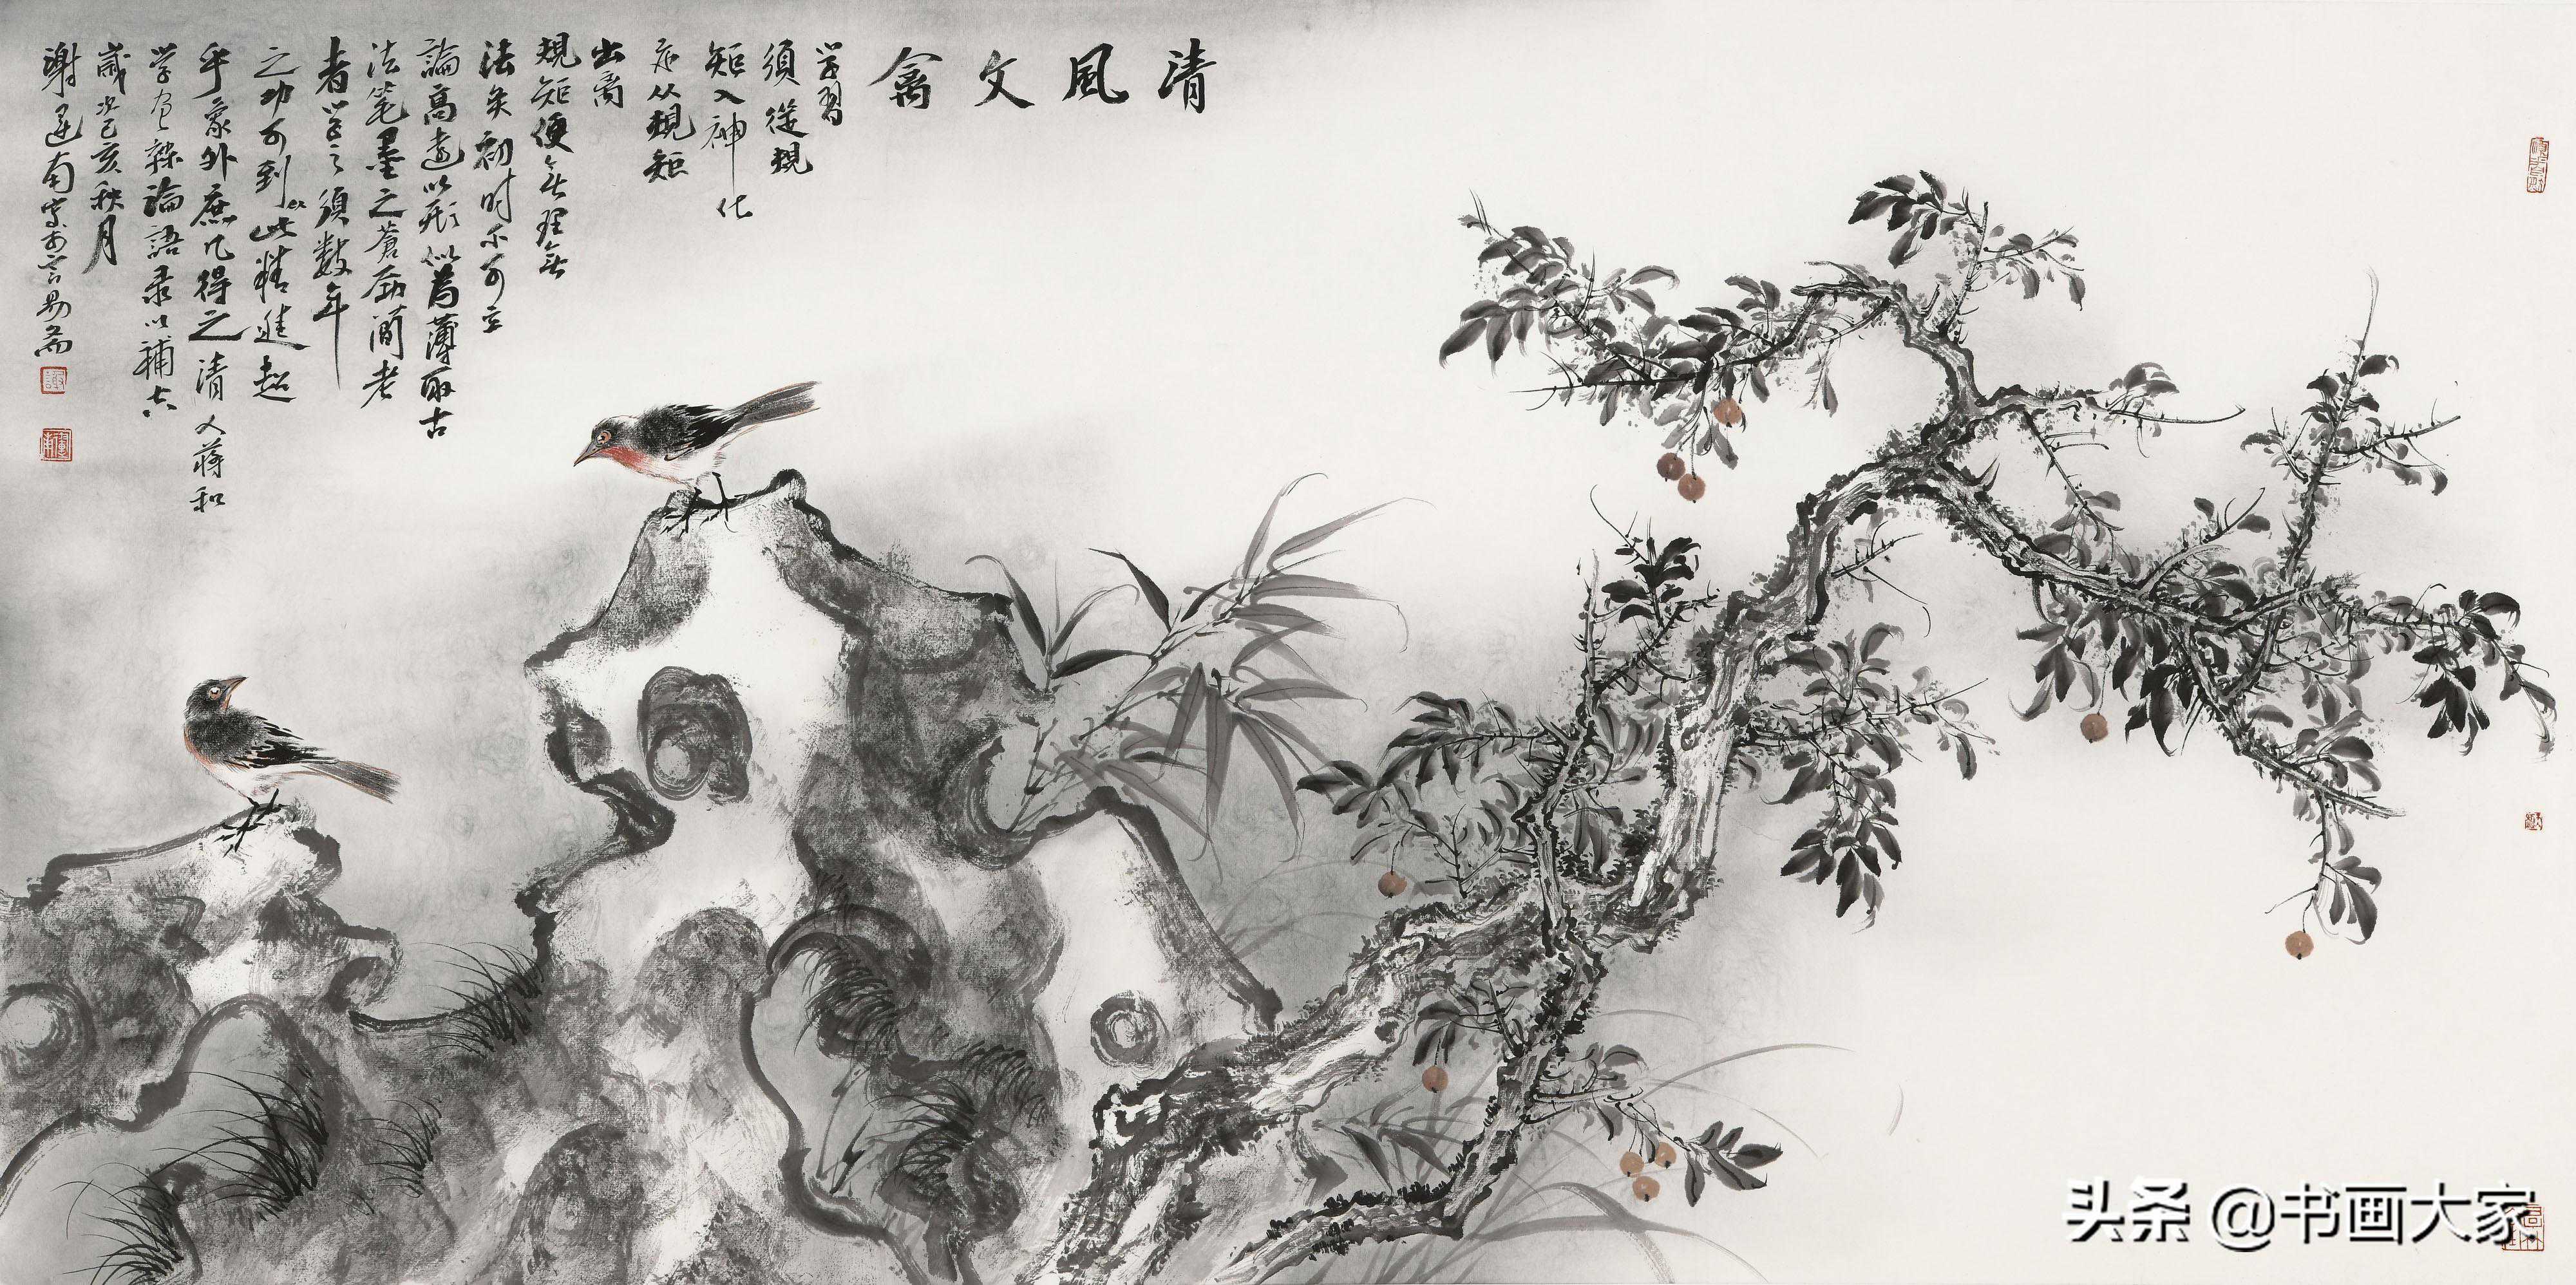 清風文禽
学習
須從規
矩入神化
亦从規矩
出离
規矩便無理無
法矣初时不可立
論高遠以形似為薄取古
法笔墨之蒼劲簡老
者学之須数年
之功可到此精進超
乎象外庶几得之清人蒋和
学画雜論語录以補白
歲次己亥秋月
謝運南寫於言易斋
謝
頭条 @书画大家